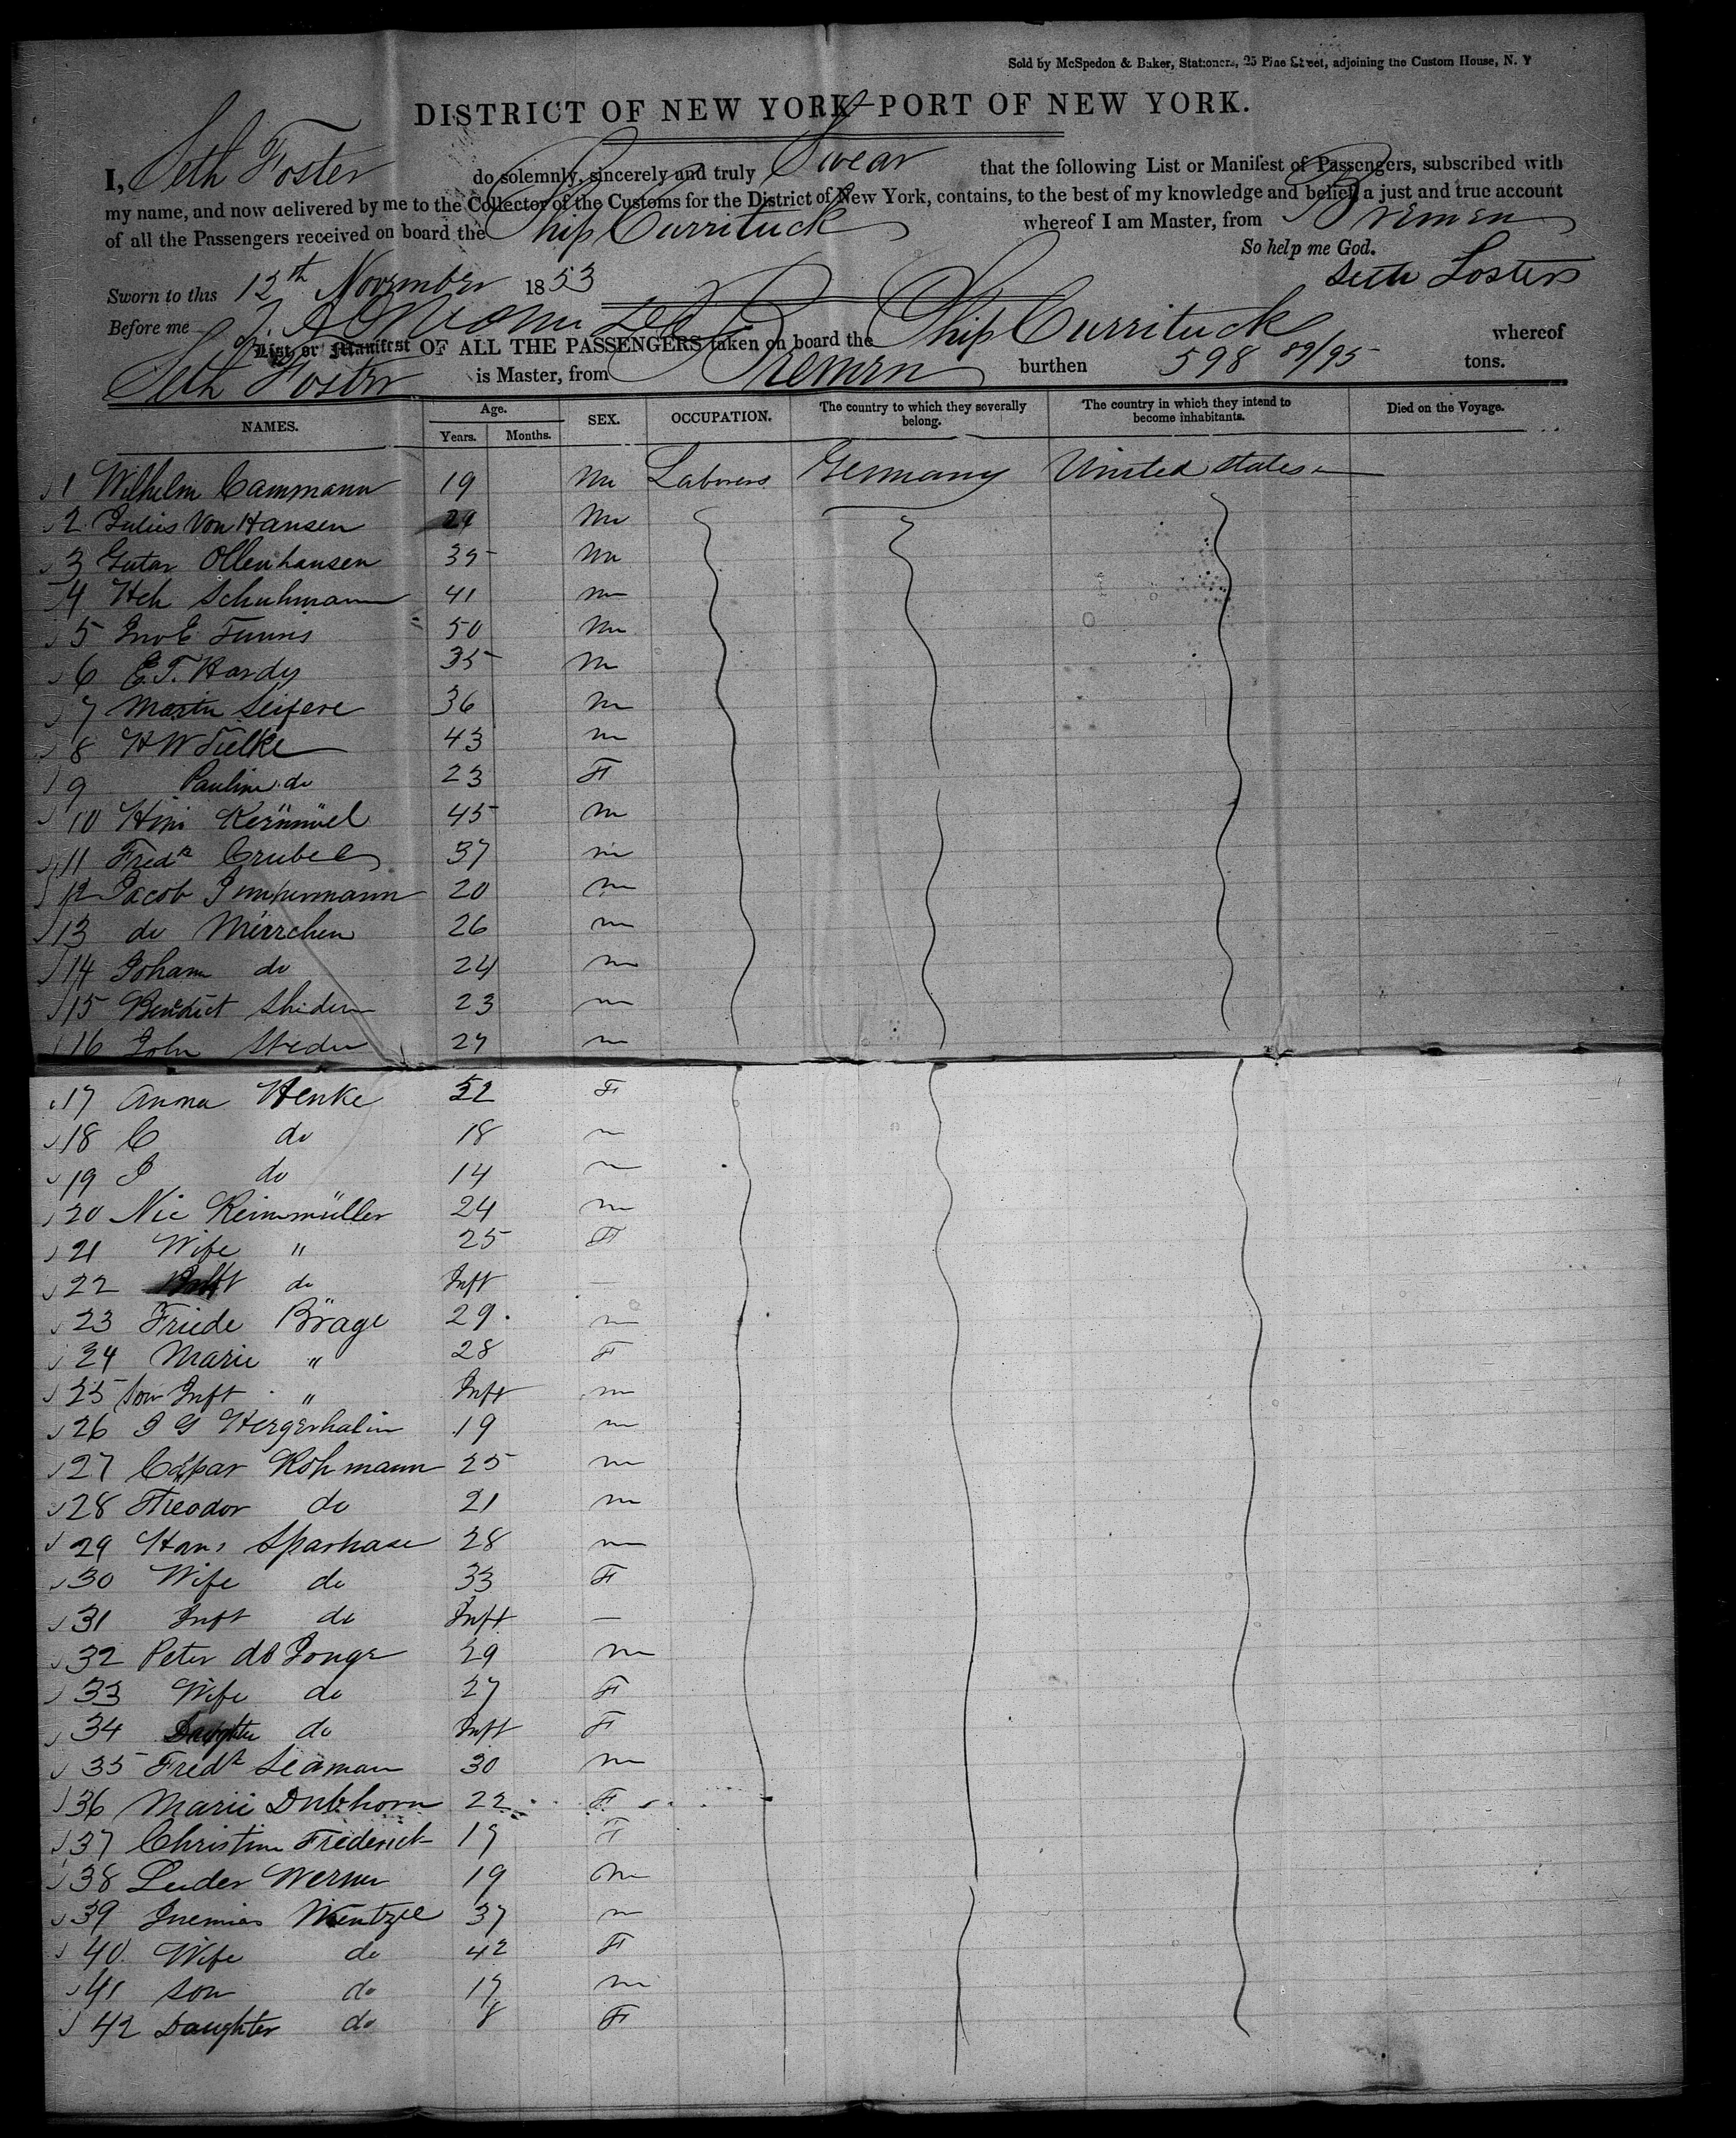 Sold by McSpedon & Baker, Stationers, 25 Pine Street, adjoining the Custom House, N. Y
DISTRICT OF NEW YORK—PORT OF NEW YORK.
I, Seth Foster do solemnly, sincerely and truly Swear that the following List or Manifest of Passengers, subscribed with
my name, and now delivered by me to the Collector of the Customs for the District of New York, contains, to the best of my knowledge and belief, a just and true account
of all the Passengers received on board the Ship Currituck whereof I am Master, from Bremen
So help me God.
Sworn to this 12th November 1853 Seth Foster
Before me
List or Manifest OF ALL THE PASSENGERS taken on board the Ship Currituck whereof
Seth Foster is Master, from Bremen burthen 598 89/95 tons.
NAMES. Age. Years. Months. SEX. OCCUPATION. The country to which they severally belong. The country in which they intend to become inhabitants. Died on the Voyage.
1 Wilhelm Cammann 19 M Laborers Germany United States
2 Julius Von Hansen 29 M
3 Ollenhansen 35 M
4 Hch Schuhmann 41 m
5 50 M
6 E.T. Hardy 35 M
7 Martin 36 m
8 H W Tielke 43 m
9 Pauline do 23 F
10 45 m
11 Fredk 37 m
12 Jacob 20 m
13 do 26 m
14 Johann do 24 m
15 Benedict 23 m
16 John m
17 Anna Henke 52 F
18 C do 18 m
19 J do 14 m
20 Nic Reinmüller 24 m
21 Wife " 25 F
22 Inft do Inft —
23 Friede Brage 29 m
24 Marie " 28 F
25 Son Inft " Inft m
26 J G 19 m
27 Caspar Kohmann 25 m
28 Theodor do 21 m
29 Hans Sparhase 28 m
30 Wife do 33 F
31 Inft do Inft —
32 Peter de Jonge 29 m
33 Wife do 27 F
34 Daughter do Inft F
35 Fredk Seaman 30 m
36 Marie Dubhorn 22 F
37 Christine Frederick 17 F
38 Luder Werner 19 m
39 Wentzel 37 m
40 Wife do 42 F
41 Son do 17 m
42 Daughter do 8 F